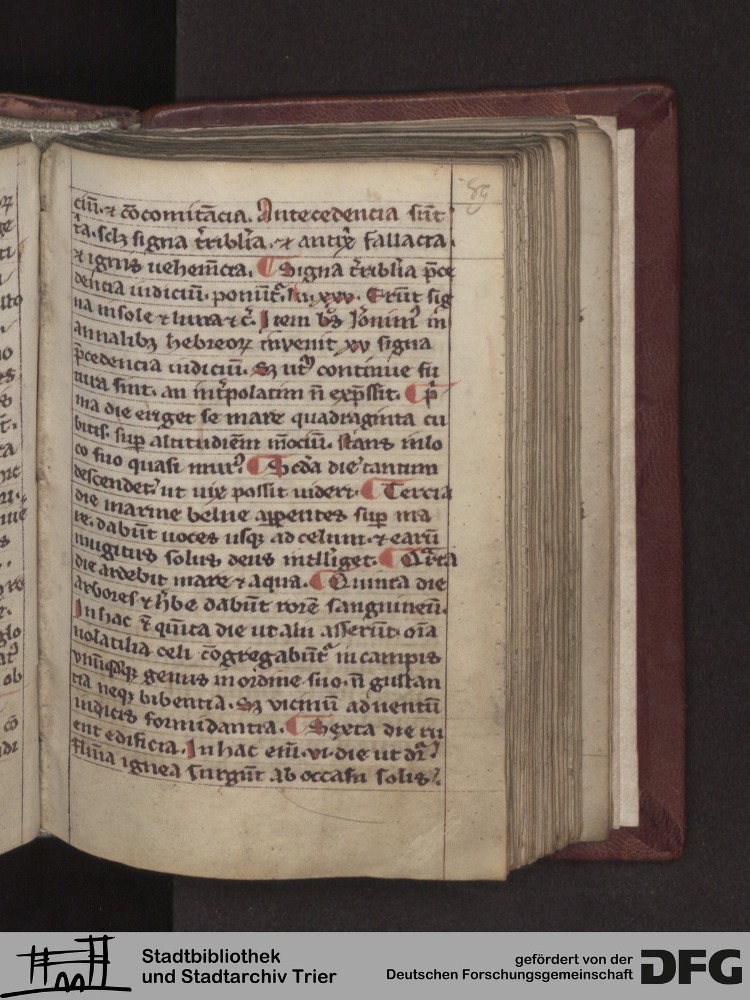 85
ciū. ⁊ cōcomitācia. Antecedencia sūt
ta. sclꝫ signa t̄riblīa. ⁊ antix̄ fallacia.
⁊ ignis uehem̄cia. ¶ Signa t̄riblia p̄ce
dencia iudiciū. ponūt᷑. lu. xxv. Erūt sig
na in sole ⁊ luna ⁊ c̄. Item bꝰ Jōnimꝰ in
annalibꝫ hebreoꝝ invenit xv signa
p̄cedencia iudiciū. Sꝫ utꝝ continue fu
tura sint. an int̄polatim n̄ exp̄ssit. ¶ p̄
ma die eriget se mare quadraginta cu
bitis. suꝑ altitudiēm mōciū. stans in lo
co suo quasi murꝰ. ¶ Scd̄a die tantum
descendet. ut uix possit uideri. ¶ Tercia
die marine belue apparentes suꝑ ma
re. dabūt uoces usqꝫ ad celum. ⁊ earū
mugitus solus deus intlliget. ¶ Qr̄ta
die ardebit mare ⁊ aqua. ¶ Quinta die
arbores ⁊ h̄be dabūt rorē sanguineū.
In hac ⁊ quīta die ut alii asserūt. oīa
uolatilia celi cōgregabūt᷑ in campis
vnūqꝫqꝫ genus in ordine suo. n̄ gustan
tia neqꝫ bibentia. Sꝫ vicinū aduentū
iudicis formidantia. ¶ Sexta die ru
ent edificia. In hac eīū. vi. die ut dr̄.
flūia ignea surgūt ab occasu solis.
Stadtbibliothek
und Stadtarchiv Trier
gefördert von der
Deutschen Forschungsgemeinschaft
DFG